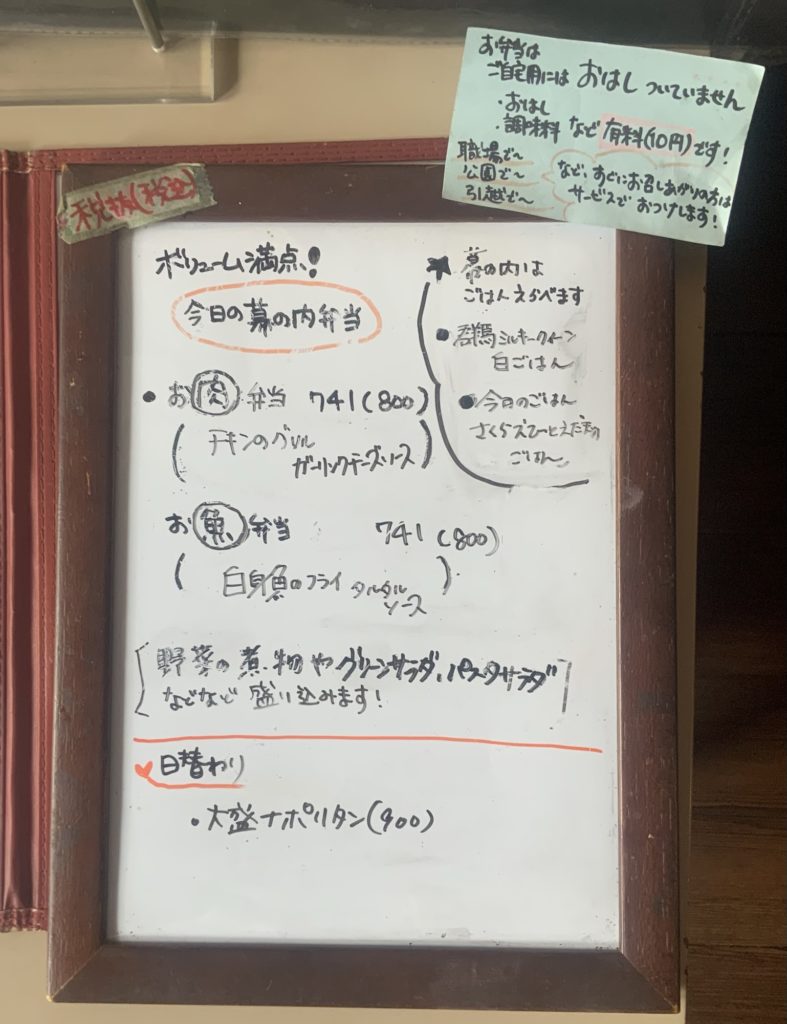 お弁当は
ご自宅用には おはし ついていません
・おはし
・調味料 など 有料(10円)です!
職場で～
公園で～
引越で～
など、すぐにお召しあがりの方は
サービスで おつけします!
税抜(税込)
ボリューム満点!
今日の幕の内弁当
・お肉弁当 741(800)
(チキンのグリル
ガーリックチーズソース)
お魚弁当 741(800)
(白身魚のフライ タルタル
ソース)
[野菜の煮物やグリーンサラダ、パスタサラダ
などなど 盛り込みます!]
★幕の内は
ごはんえらべます
●群馬ミルキークイーン
白ごはん
●今日のごはん
さくらえびとえだ豆の
ごはん
日替わり
・大盛ナポリタン(900)